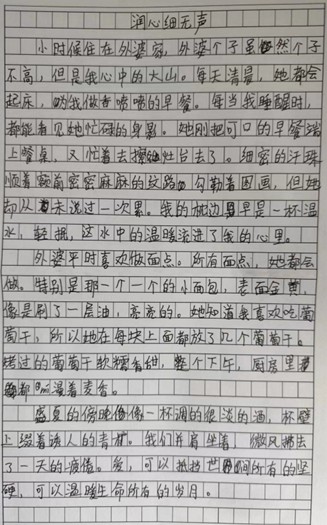 润心细无声
小时候住在外婆家，外婆个子虽然个子
不高，但是我心中的大山。每天清晨，她都会
起床，为我做香喷喷的早餐。每当我睡醒时，
都能看见她忙碌的身影。她刚把可口的早餐端
上餐桌，又忙着去擦灶台去了。细密的汗珠
顺着额前密密麻麻的纹路勾勒着图画，但她
却从未说过一次累。我的枕边早是一杯温
水，轻抿，这水中的温暖流进了我的心里。
外婆平时喜欢做面点。所有面点，她都会
做。特别是那一个一个的小面包，表面金黄，
像是刷了一层油，亮亮的。她知道我喜欢吃葡
萄干，所以她在每块上面都放了几个葡萄干。
烤过的葡萄干软糯香甜，整个下午，厨房里
都弥漫着麦香。
盛夏的傍晚像像一杯调的很淡的酒，杯壁
上缀着诱人的青柠。我们并肩坐着，微风拂去
了一天的疲惫。爱，可以抵挡世间所有的坚
硬，可以温暖生命所有的岁月。